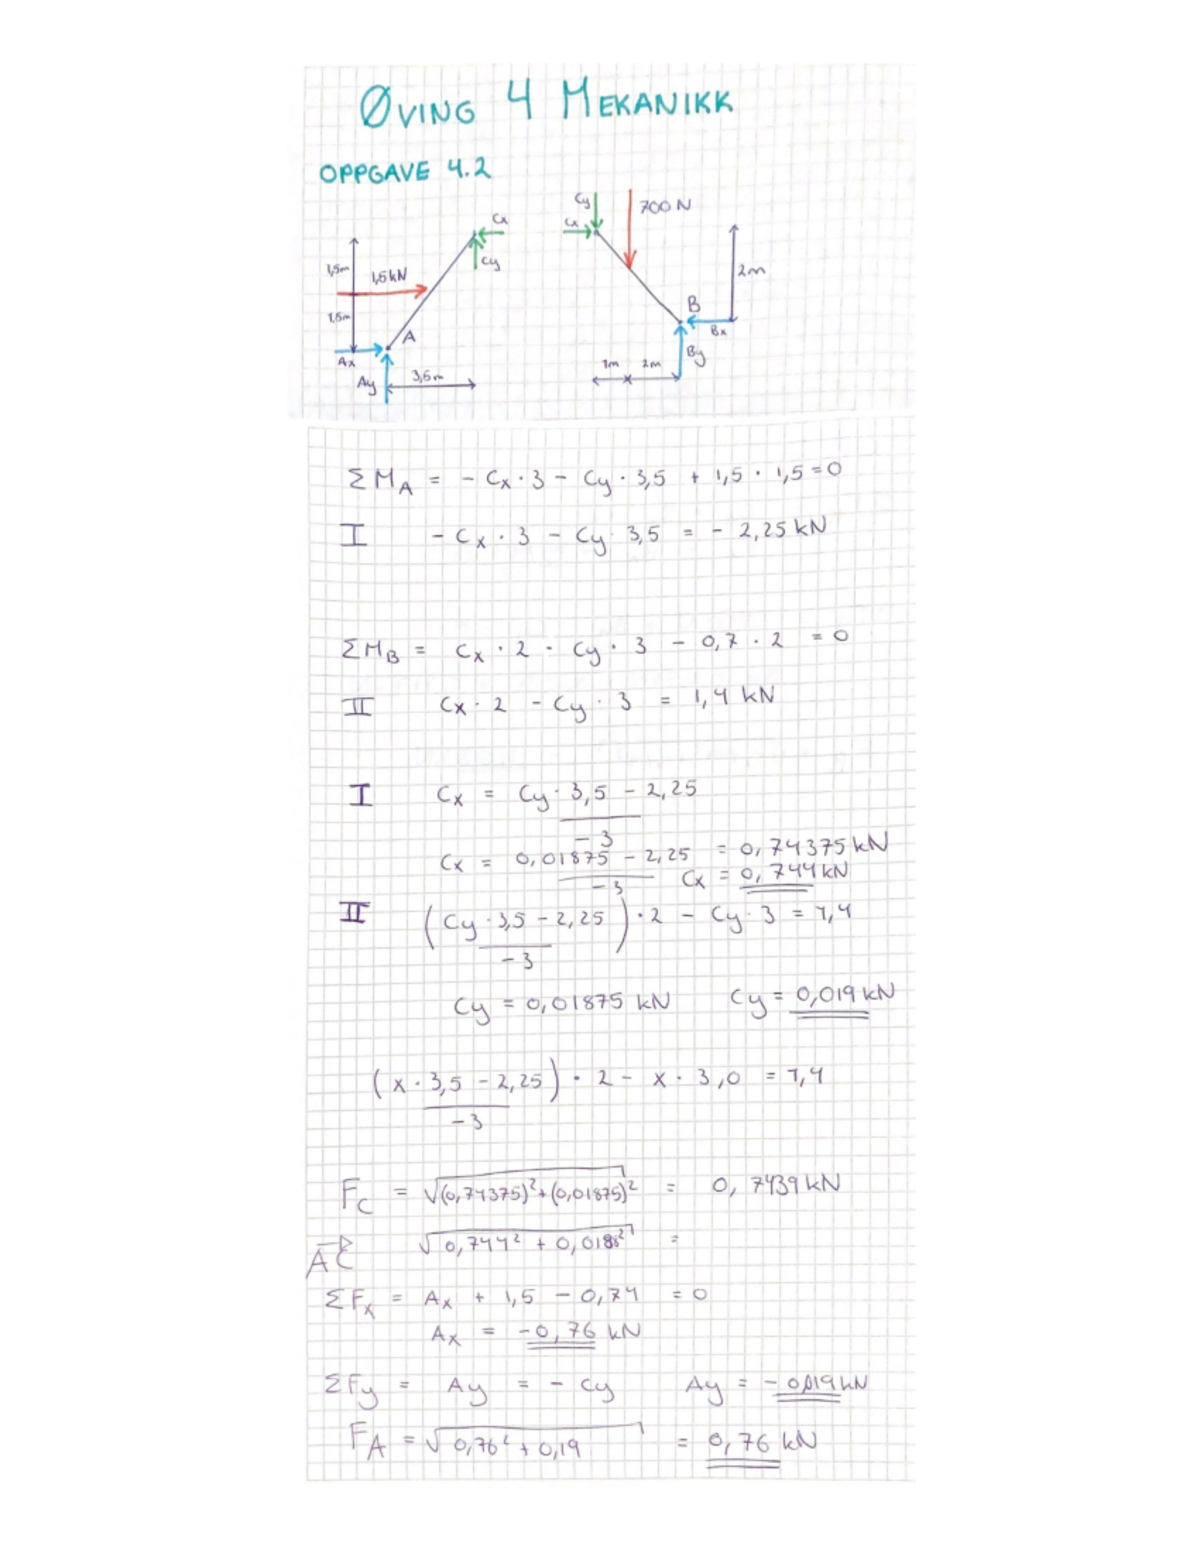 ØVING 4 MEKANIKK
OPPGAVE 4.2
Cx
Cy
1,5m
1,5kN
1,5m
A
Ax
Ay
3,5m
Cy
Cx
700 N
2m
B
Bx
By
1m 2m
ΣM_A = - Cx · 3 - Cy · 3,5 + 1,5 · 1,5 = 0
I - Cx · 3 - Cy · 3,5 = - 2,25 kN
ΣM_B = Cx · 2 - Cy · 3 - 0,7 · 2 = 0
II Cx · 2 - Cy · 3 = 1,4 kN
I Cx = Cy · 3,5 - 2,25
-3
Cx = 0,01875 - 2,25 = 0,74375 kN
-3 Cx = 0,744 kN
II (Cy · 3,5 - 2,25) · 2 - Cy · 3 = 1,4
-3
Cy = 0,01875 kN Cy = 0,019 kN
(x · 3,5 - 2,25) · 2 - x · 3,0 = 1,4
-3
F_C = √(0,74375)² + (0,01875)² = 0,7439 kN
AC √0,744² + 0,0188² =
ΣFx = Ax + 1,5 - 0,74 = 0
Ax = -0,76 kN
ΣFy = Ay = - Cy Ay = -0,019 kN
F_A = √0,76² + 0,19 = 0,76 kN